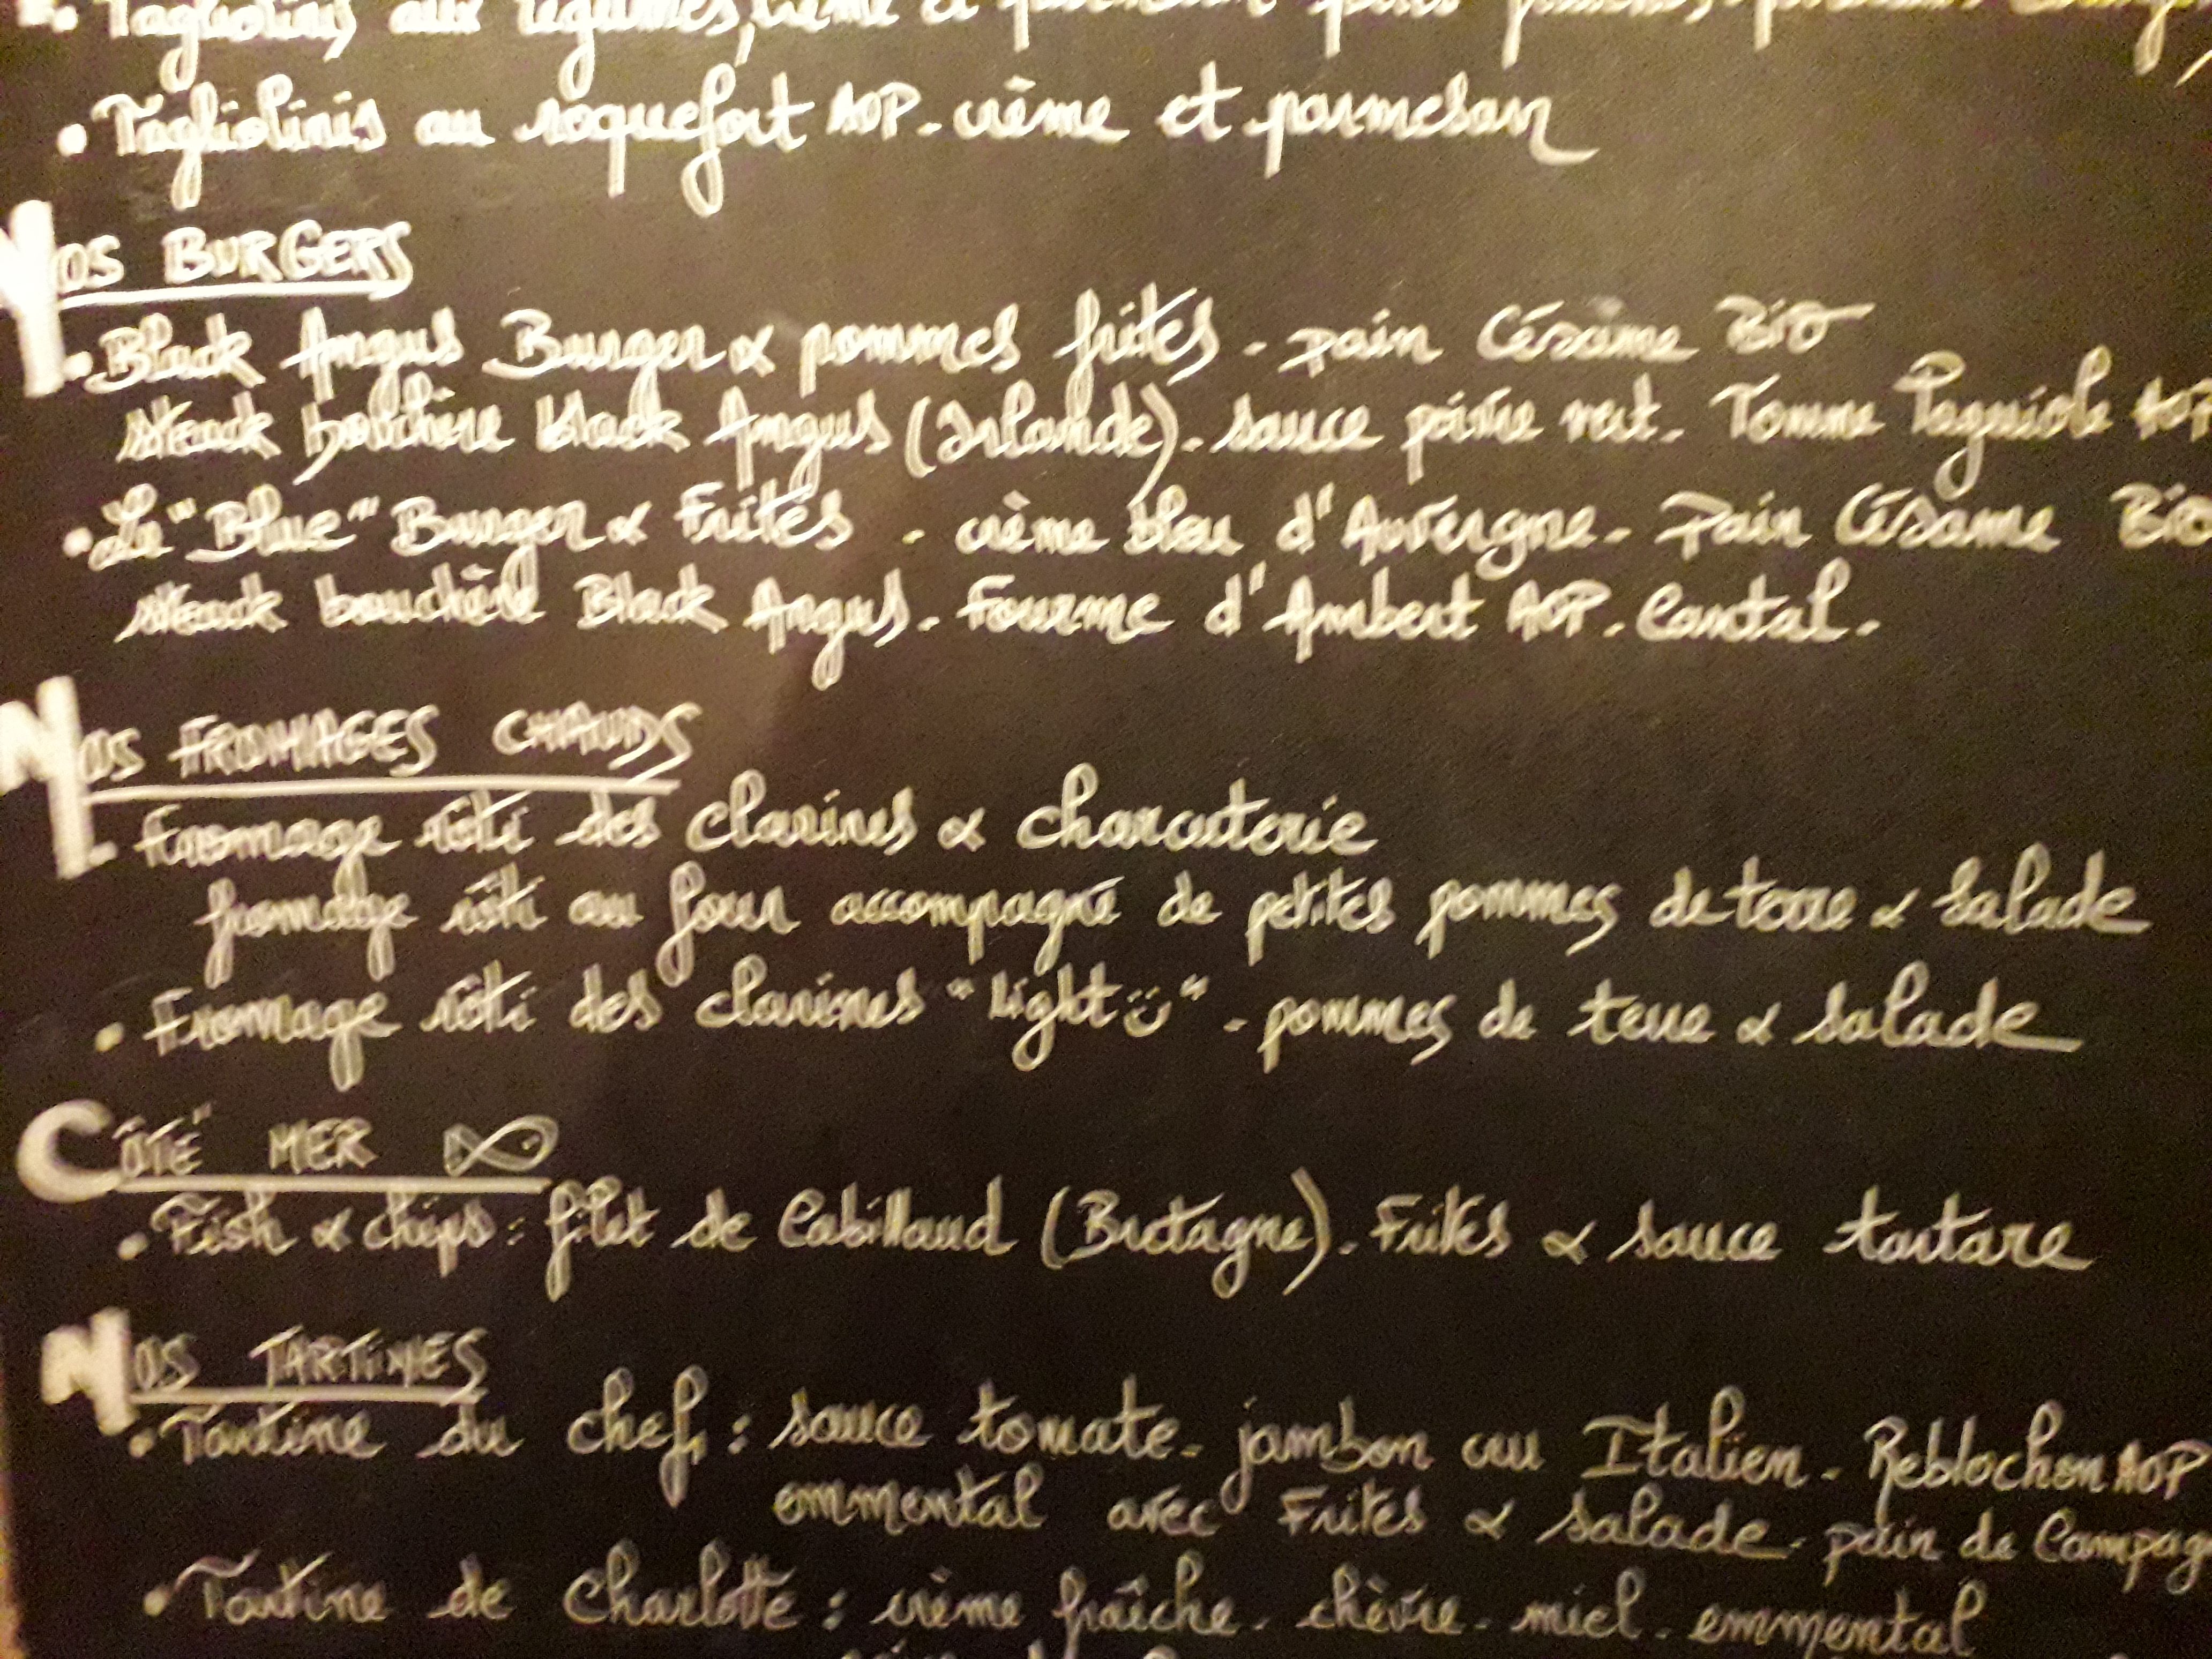 • Tagliolinis aux légumes, crème et
• Tagliolinis au roquefort AOP. crème et parmesan
NOS BURGERS
• Black Angus Burger & pommes frites. pain Césame Bio
steack bouchère black Angus (Irlande). sauce poivre vert. Tomme Laguiole AOP
• Le "Blue" Burger & Frites. crème bleu d'Auvergne. Pain Césame Bio
steack bouchère Black Angus. Fourme d'Ambert AOP. Cantal.
NOS FROMAGES CHAUDS
• Fromage rôti des clarines & charcuterie
fromage rôti au four accompagné de petites pommes de terre & salade
• Fromage rôti des clarines "light☺". pommes de terre & salade
CÔTÉ MER
• Fish & chips : filet de Cabillaud (Bretagne). Frites & sauce tartare
NOS TARTINES
• Tartine du chef : sauce tomate. jambon cru Italien. Reblochon AOP
emmental avec Frites & salade. pain de Campag
• Tartine de Charlotte : crème fraîche. chèvre. miel. emmental